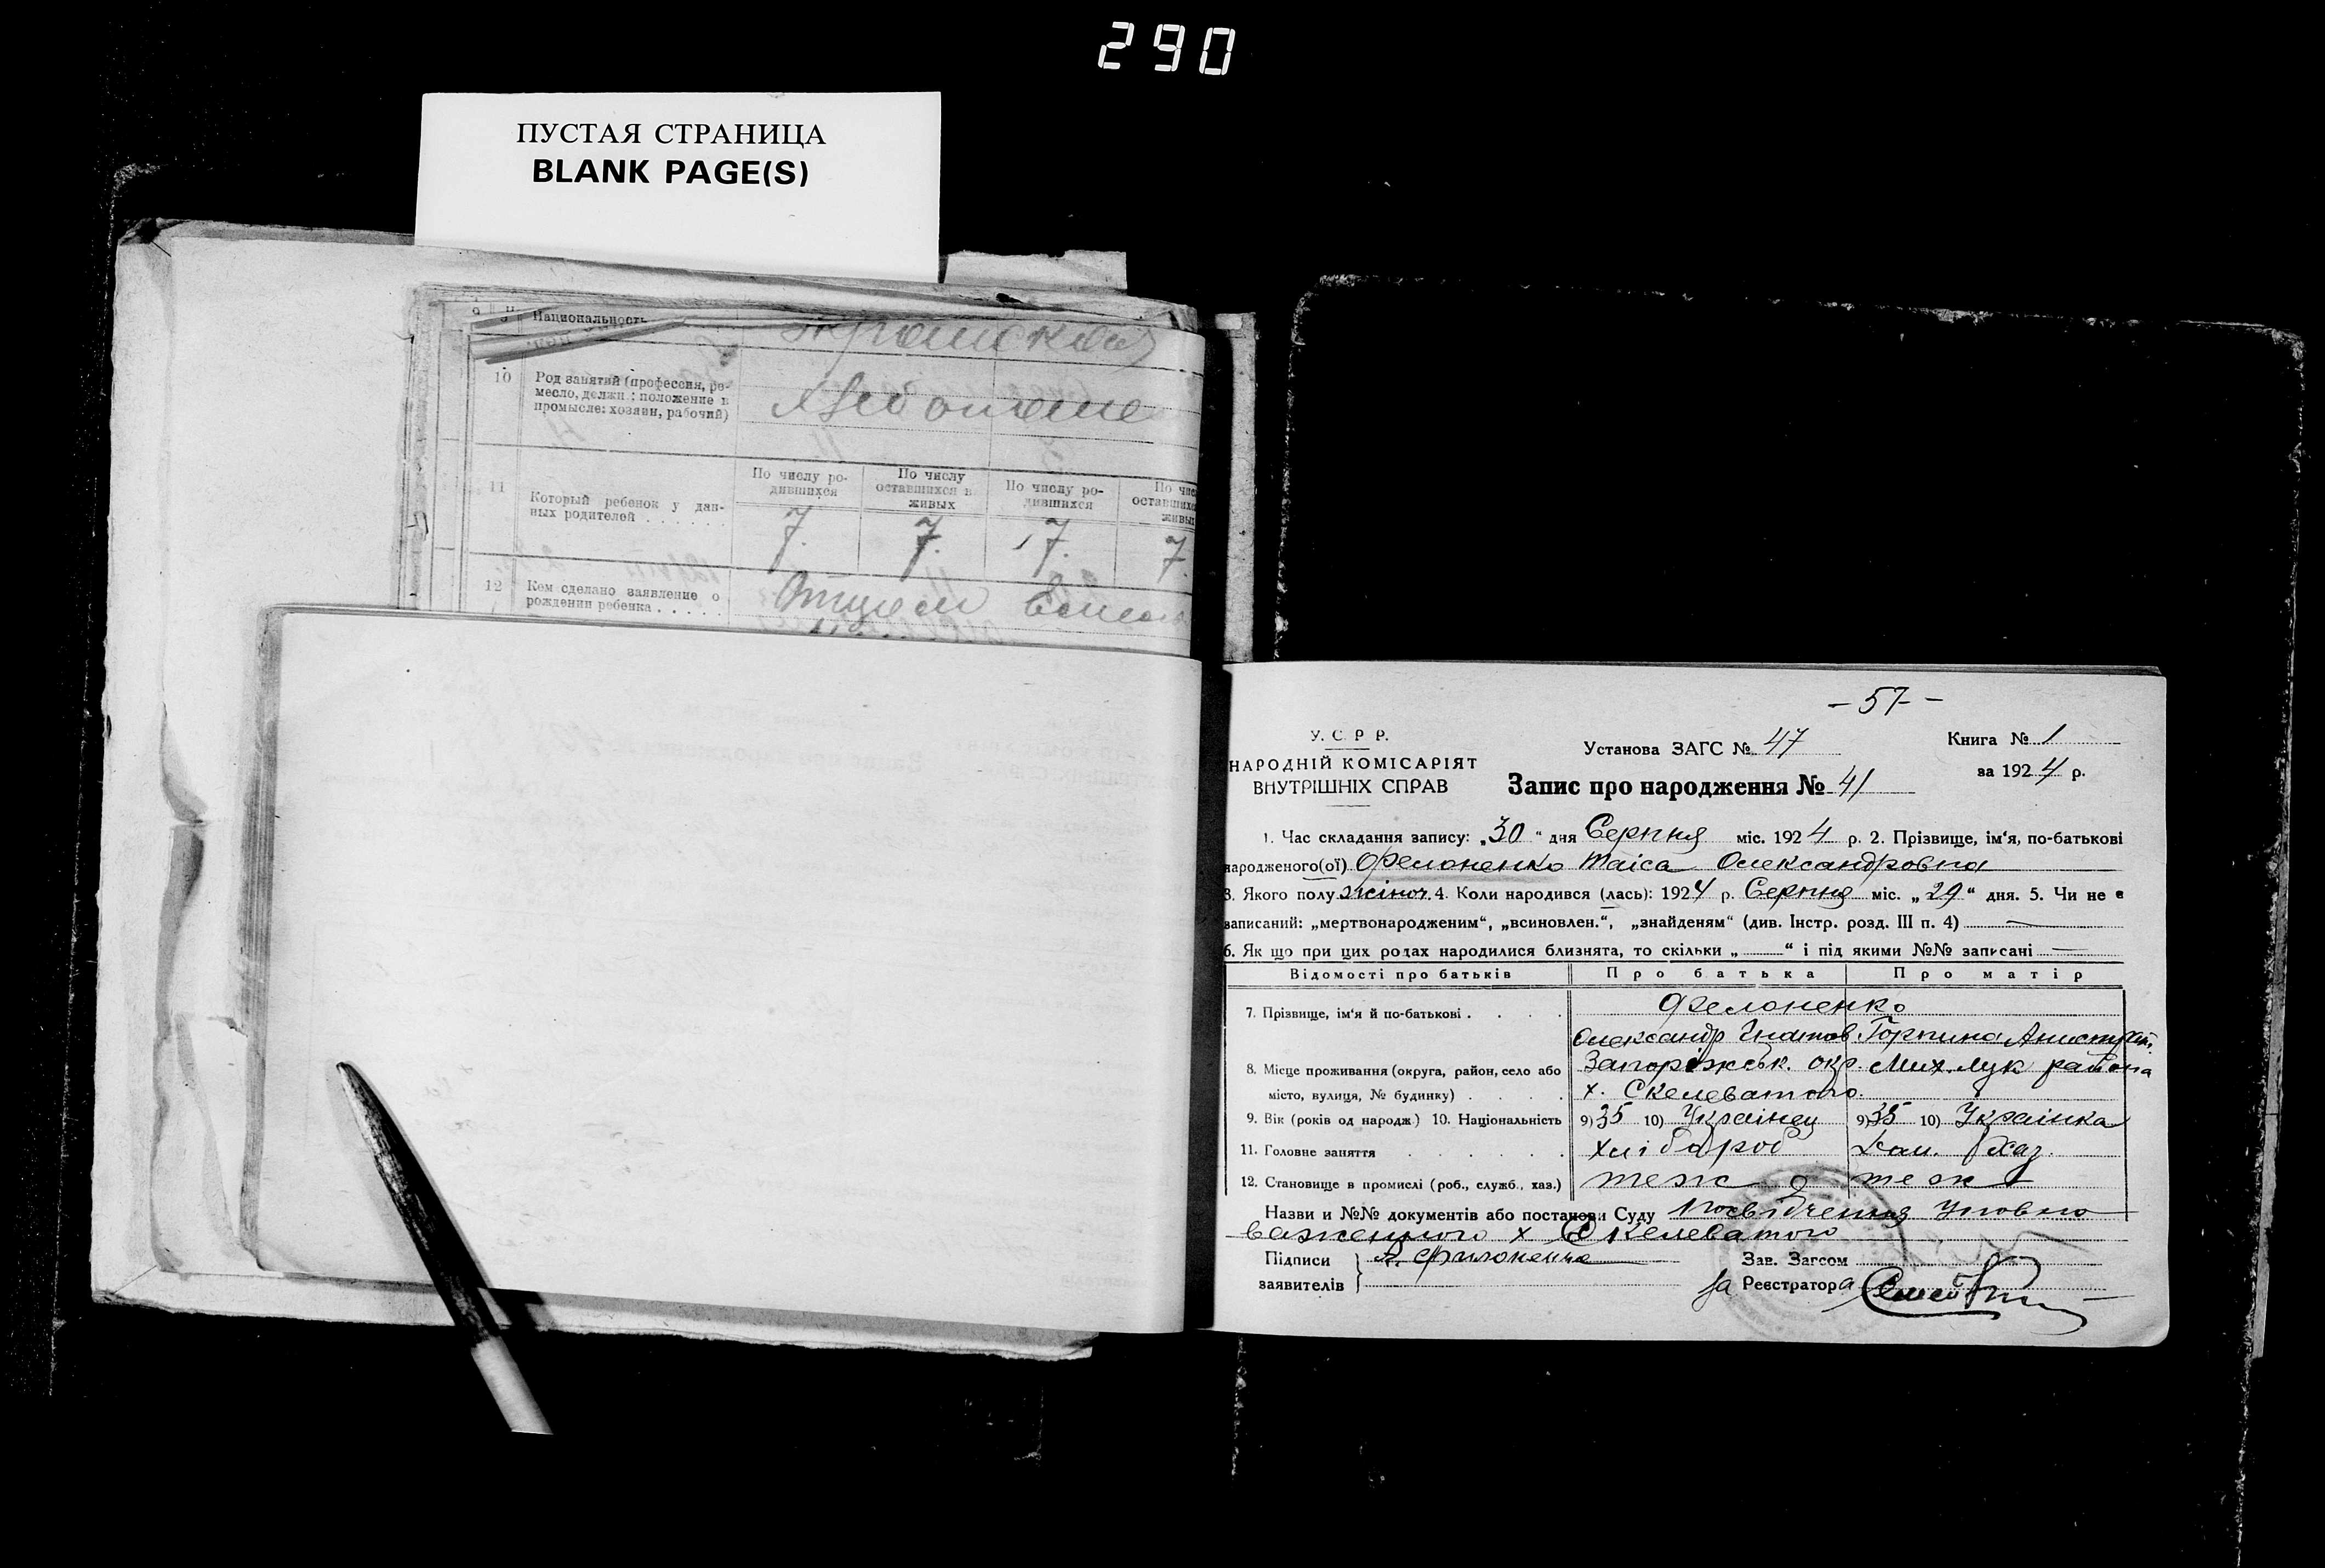 290
ПУСТАЯ СТРАНИЦА
BLANK PAGE(S)
9 Национальность
10 Род занятий (профессия, ре-
месло, должн.: положение в
промысле: хозяин, рабочий)
По числу ро- По числу По числу ро-
дившихся оставшихся в дившихся
живых
11 Который ребенок у дан-
ных родителей
7. 7. 7. 7.
12 Кем сделано заявление о
рождении ребенка Отцом
- 57 -
У. С. Р. Р.
НАРОДНІЙ КОМІСАРІЯТ
ВНУТРІШНІХ СПРАВ
Установа ЗАГС № 47
Книга № 1
за 1924 р.
Запис про народження № 41
1. Час складання запису: „30“ дня Серпня міс. 1924 р. 2. Прізвище, ім‘я, по-батькові
народженого(ої) Фелоненко Таіса Олександровна
3. Якого полу жіноч. 4. Коли народився (лась): 1924 р. Серпня міс. „29“ дня. 5. Чи не є
записаний: „мертвонародженим“, „всиновлен.“, „знайденям“ (див. Інстр. розд. III п. 4) —
6. Як що при цих родах народилися близнята, то скільки „—“ і під якими №№ записані —
Відомості про батьків Про батька Про матір
7. Прізвище, ім‘я й по-батькові . . . . Фелоненко
Олександр Гнатов. Горпина
8. Місце проживання (округа, район, село або Запоріжськ. окр. Мих. Лук района
місто, вулиця, № будинку) . . . . х. Скелеватого.
9. Вік (років од народж.) 10. Національність 9) 35 10) Українец 9) 35 10) Українка
11. Головне заняття . . . . . . Хлібороб Дом. Хаз.
12. Становище в промислі (роб., служб., хаз.) теж теж
Назви и №№ документів або постанови Суду Посвідчення Уповно
важенного х Скелеватого
Підписи А. Филоненко Зав. Загсом
заявителів За Реєстратора